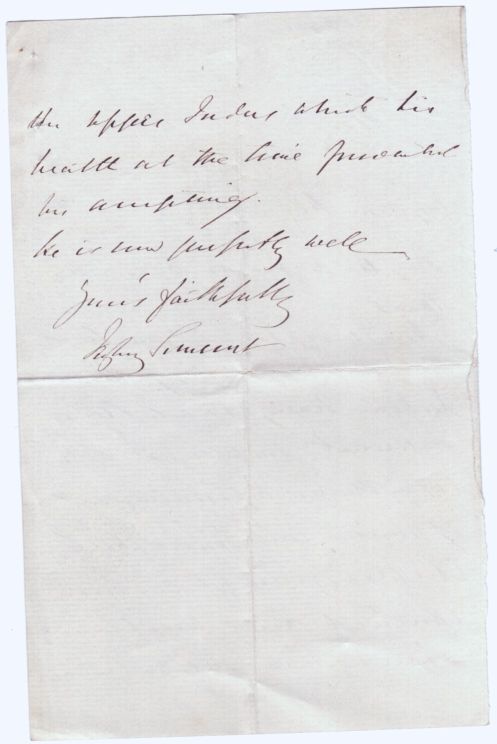 the upper Indus which his
health at the time prevented
his accepting.
he is now perfectly well
Yours faithfully